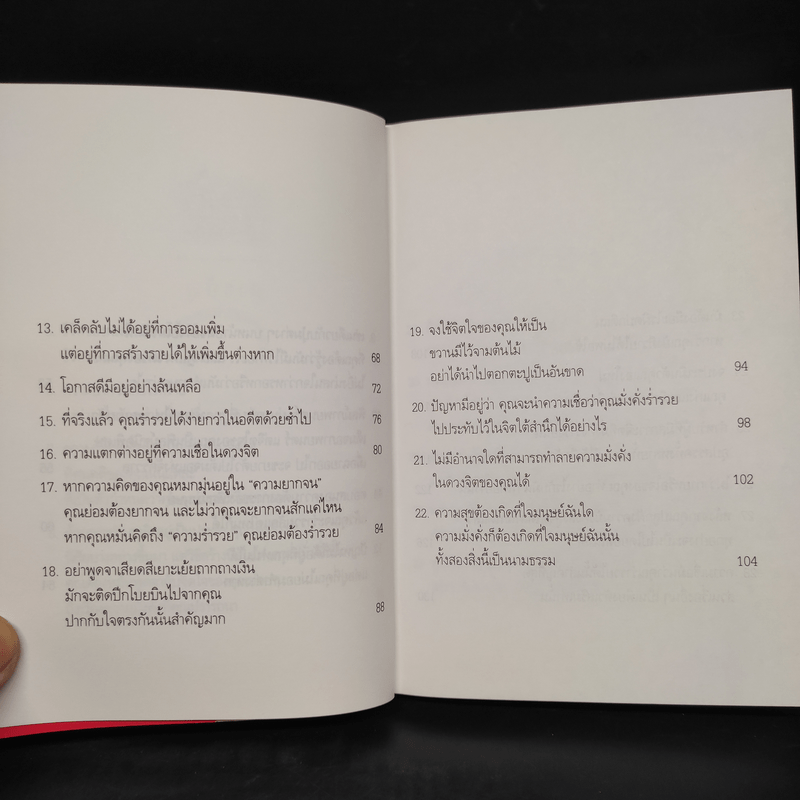 13. เคล็ดลับไม่ได้อยู่ที่การออมเพิ่ม
แต่อยู่ที่การสร้างรายได้ให้เพิ่มขึ้นต่างหาก 68
14. โอกาสดีมีอยู่อย่างล้นเหลือ 72
15. ที่จริงแล้ว คุณร่ำรวยได้ง่ายกว่าในอดีตด้วยซ้ำไป 76
16. ความแตกต่างอยู่ที่ความเชื่อในดวงจิต 80
17. หากความคิดของคุณหมกมุ่นอยู่ใน “ความยากจน”
คุณย่อมต้องยากจน และไม่ว่าคุณจะยากจนสักแค่ไหน
หากคุณหมั่นคิดถึง “ความร่ำรวย” คุณย่อมต้องร่ำรวย 84
18. อย่าพูดจาเสียดสีเยาะเย้ยถากถางเงิน
มักจะติดปีกโบยบินไปจากคุณ
ปากกับใจตรงกันนั้นสำคัญมาก 88
19. จงใช้จิตใจของคุณให้เป็น
ขวานมีไว้จามต้นไม้
อย่าได้นำไปตอกตะปูเป็นอันขาด 94
20. ปัญหามีอยู่ว่า คุณจะนำความเชื่อว่าคุณมั่งคั่งร่ำรวย
ไปประทับไว้ในจิตใต้สำนึกได้อย่างไร 98
21. ไม่มีอำนาจใดที่สามารถทำลายความมั่งคั่ง
ในดวงจิตของคุณได้ 102
22. ความสุขต้องเกิดที่ใจมนุษย์ฉันใด
ความมั่งคั่งก็ต้องเกิดที่ใจมนุษย์ฉันนั้น
ทั้งสองสิ่งนี้เป็นนามธรรม 104